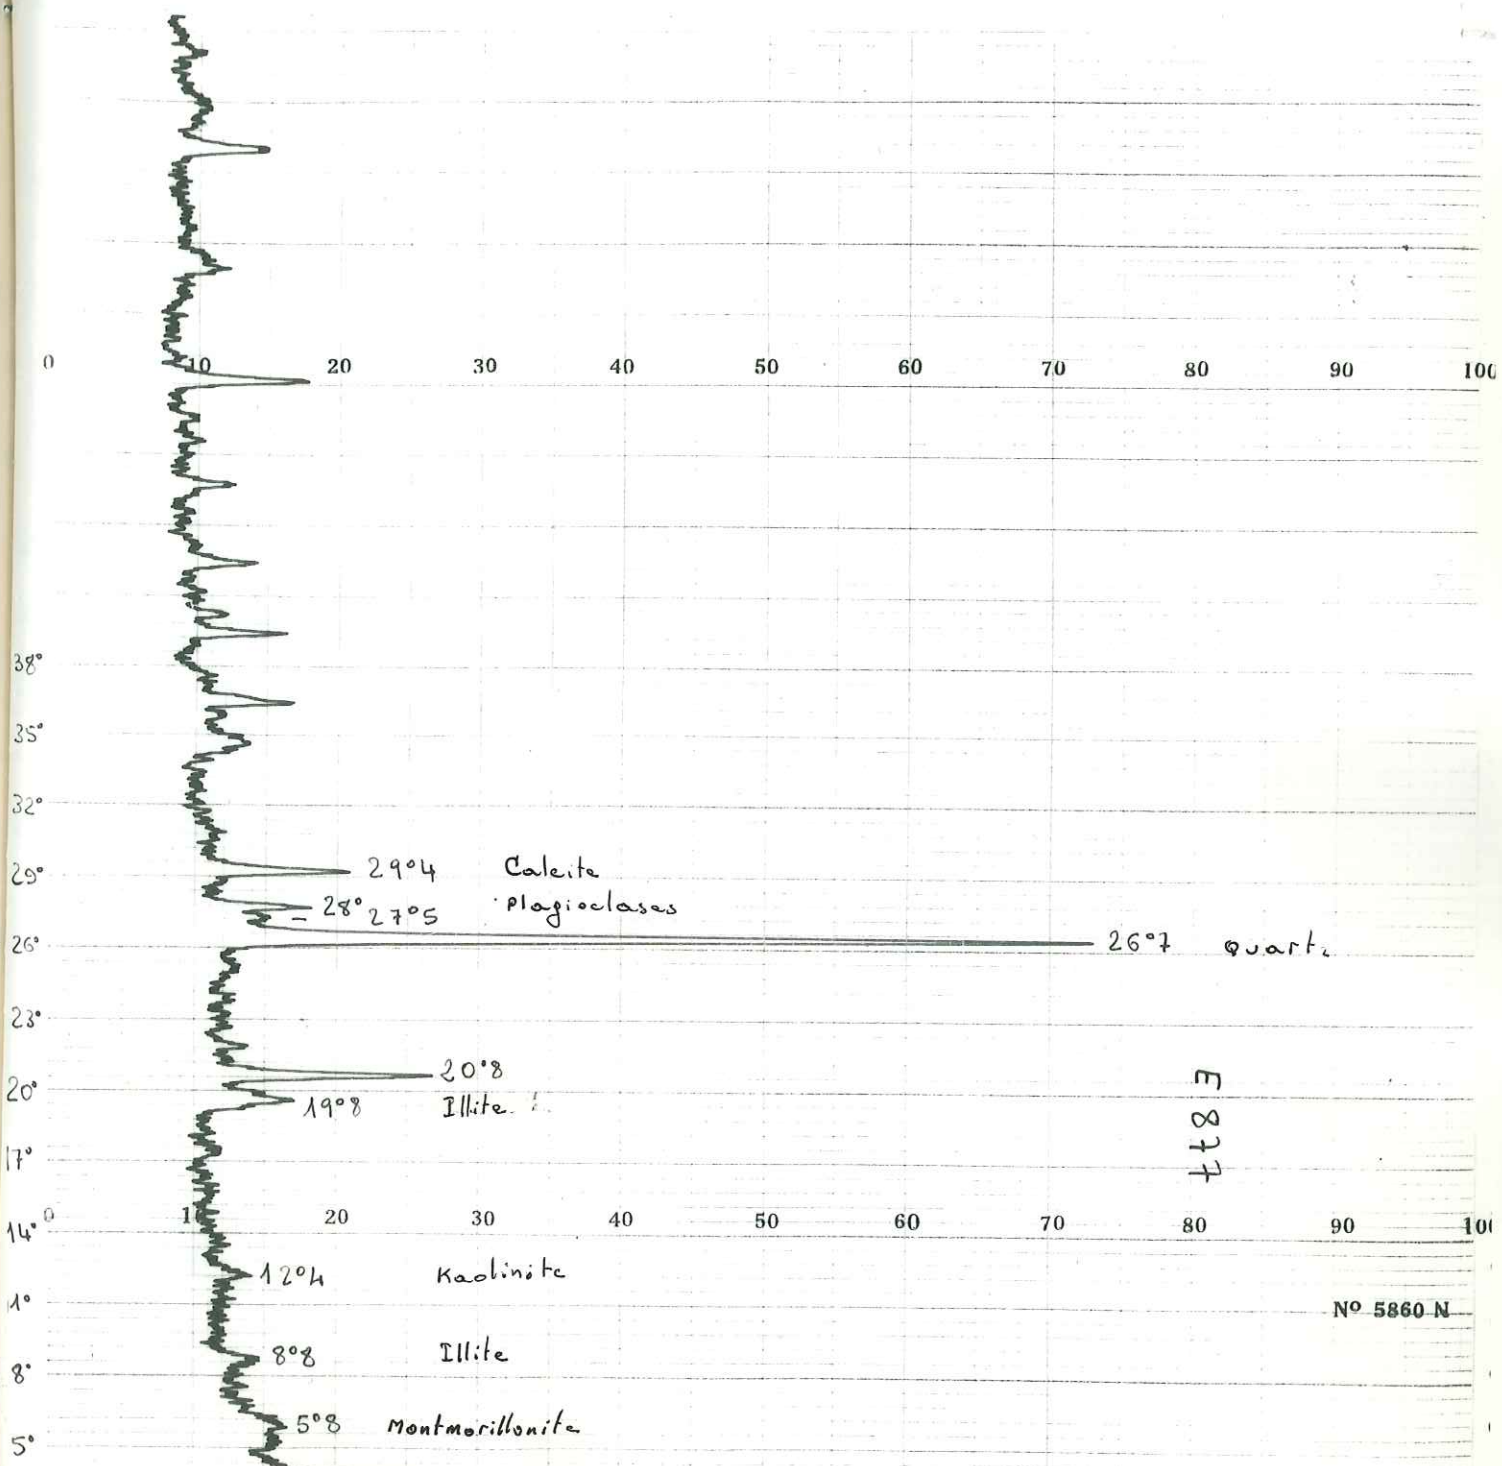 0 10 20 30 40 50 60 70 80 90 100
38°
35°
32°
29° 29°4 Calcite
28° 27°5 Plagioclases
26° 26°7 Quartz
23°
20°8
20° 19°8 Illite
E 877
17°
0 10 20 30 40 50 60 70 80 90 100
14°
12°4 Kaolinite
1°
Nº 5860 N
8°8 Illite
8°
5°8 Montmorillonite
5°